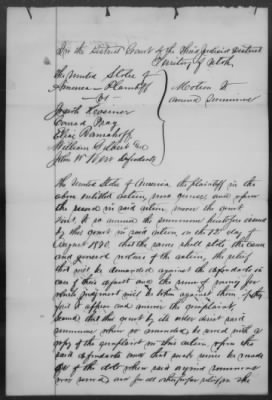 In the District Court of the Third Judicial District
Territory of Utah.
The United States of
America - Plaintiff
vs
Conrad
William
John W. Kerr defendants
Motion to
amend summons
The United States of America, the plaintiff in the
above entitled action, now comes and upon
the record in said action moves the court
first, to so amend the summons heretofore issued
by this court in said action on the 12th day of
August 1870, that the same shall state the cause
and general nature of the action, the relief
that will be demanded against the defendants in
case of their default and the sum of money for
which judgment will be taken against them if they
fail to appear and answer the complaint,
Second that this court by its order direct said
summons when so amended, be served with a
copy of the complaint in this action, upon the
said defendants and that such service be made
as of the date when said original summons
was served and for all other further relief in the